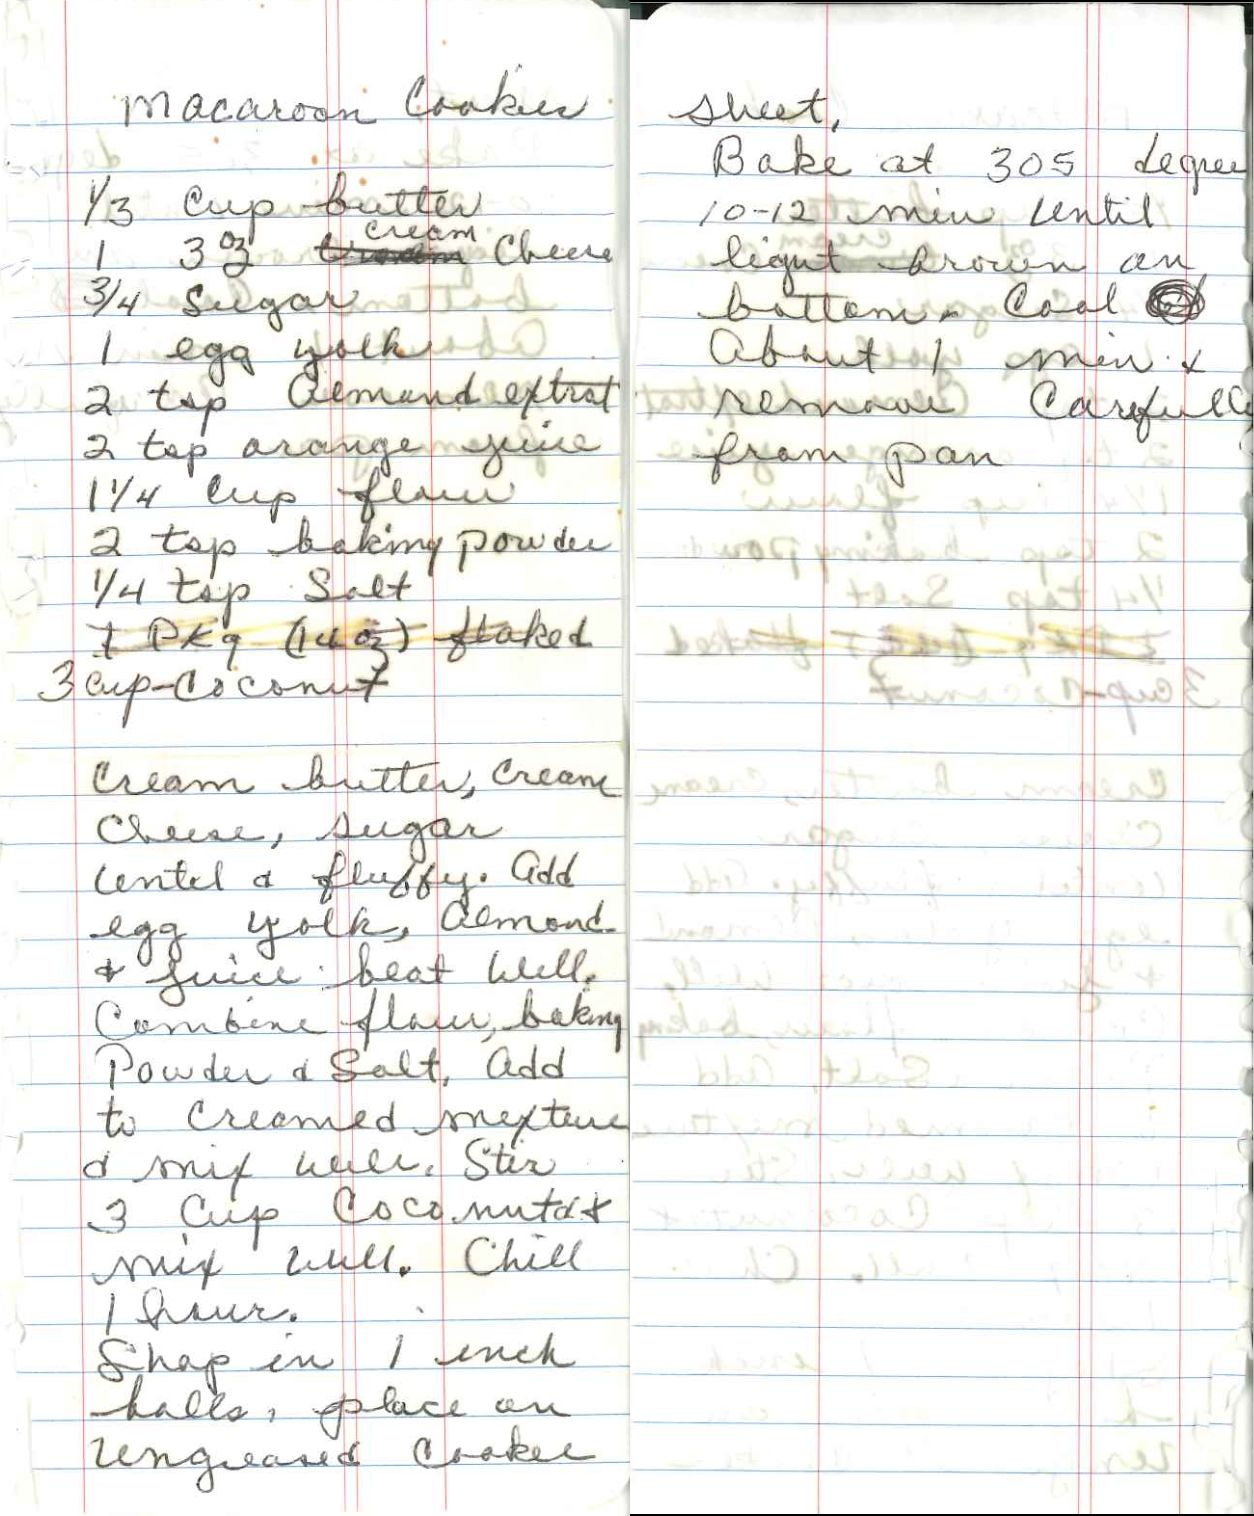 Macaroon Cookies
1/3 Cup butter
1 3 oz cream Cheese
3/4 Sugar
1 egg yolk
2 tsp Almond extrat
2 tsp orange juice
1 1/4 Cup flour
2 tsp baking powder
1/4 tsp Salt
1 Pkg (14 oz) flaked
3 cup-Coconut
Cream butter, Cream
Cheese, sugar
until & fluffy. Add
egg yolk, Almond
& juice beat well.
Combine flour, baking
Powder & Salt, Add
to Creamed mixture
& mix well. Stir
3 Cup Coconut &
mix well. Chill
1 hour.
Shap in 1 inch
balls, place on
Ungreased Cookie
sheet,
Bake at 305 degree
10-12 min until
light brown on
bottom. Cool
About 1 min &
remove Carefully
from pan